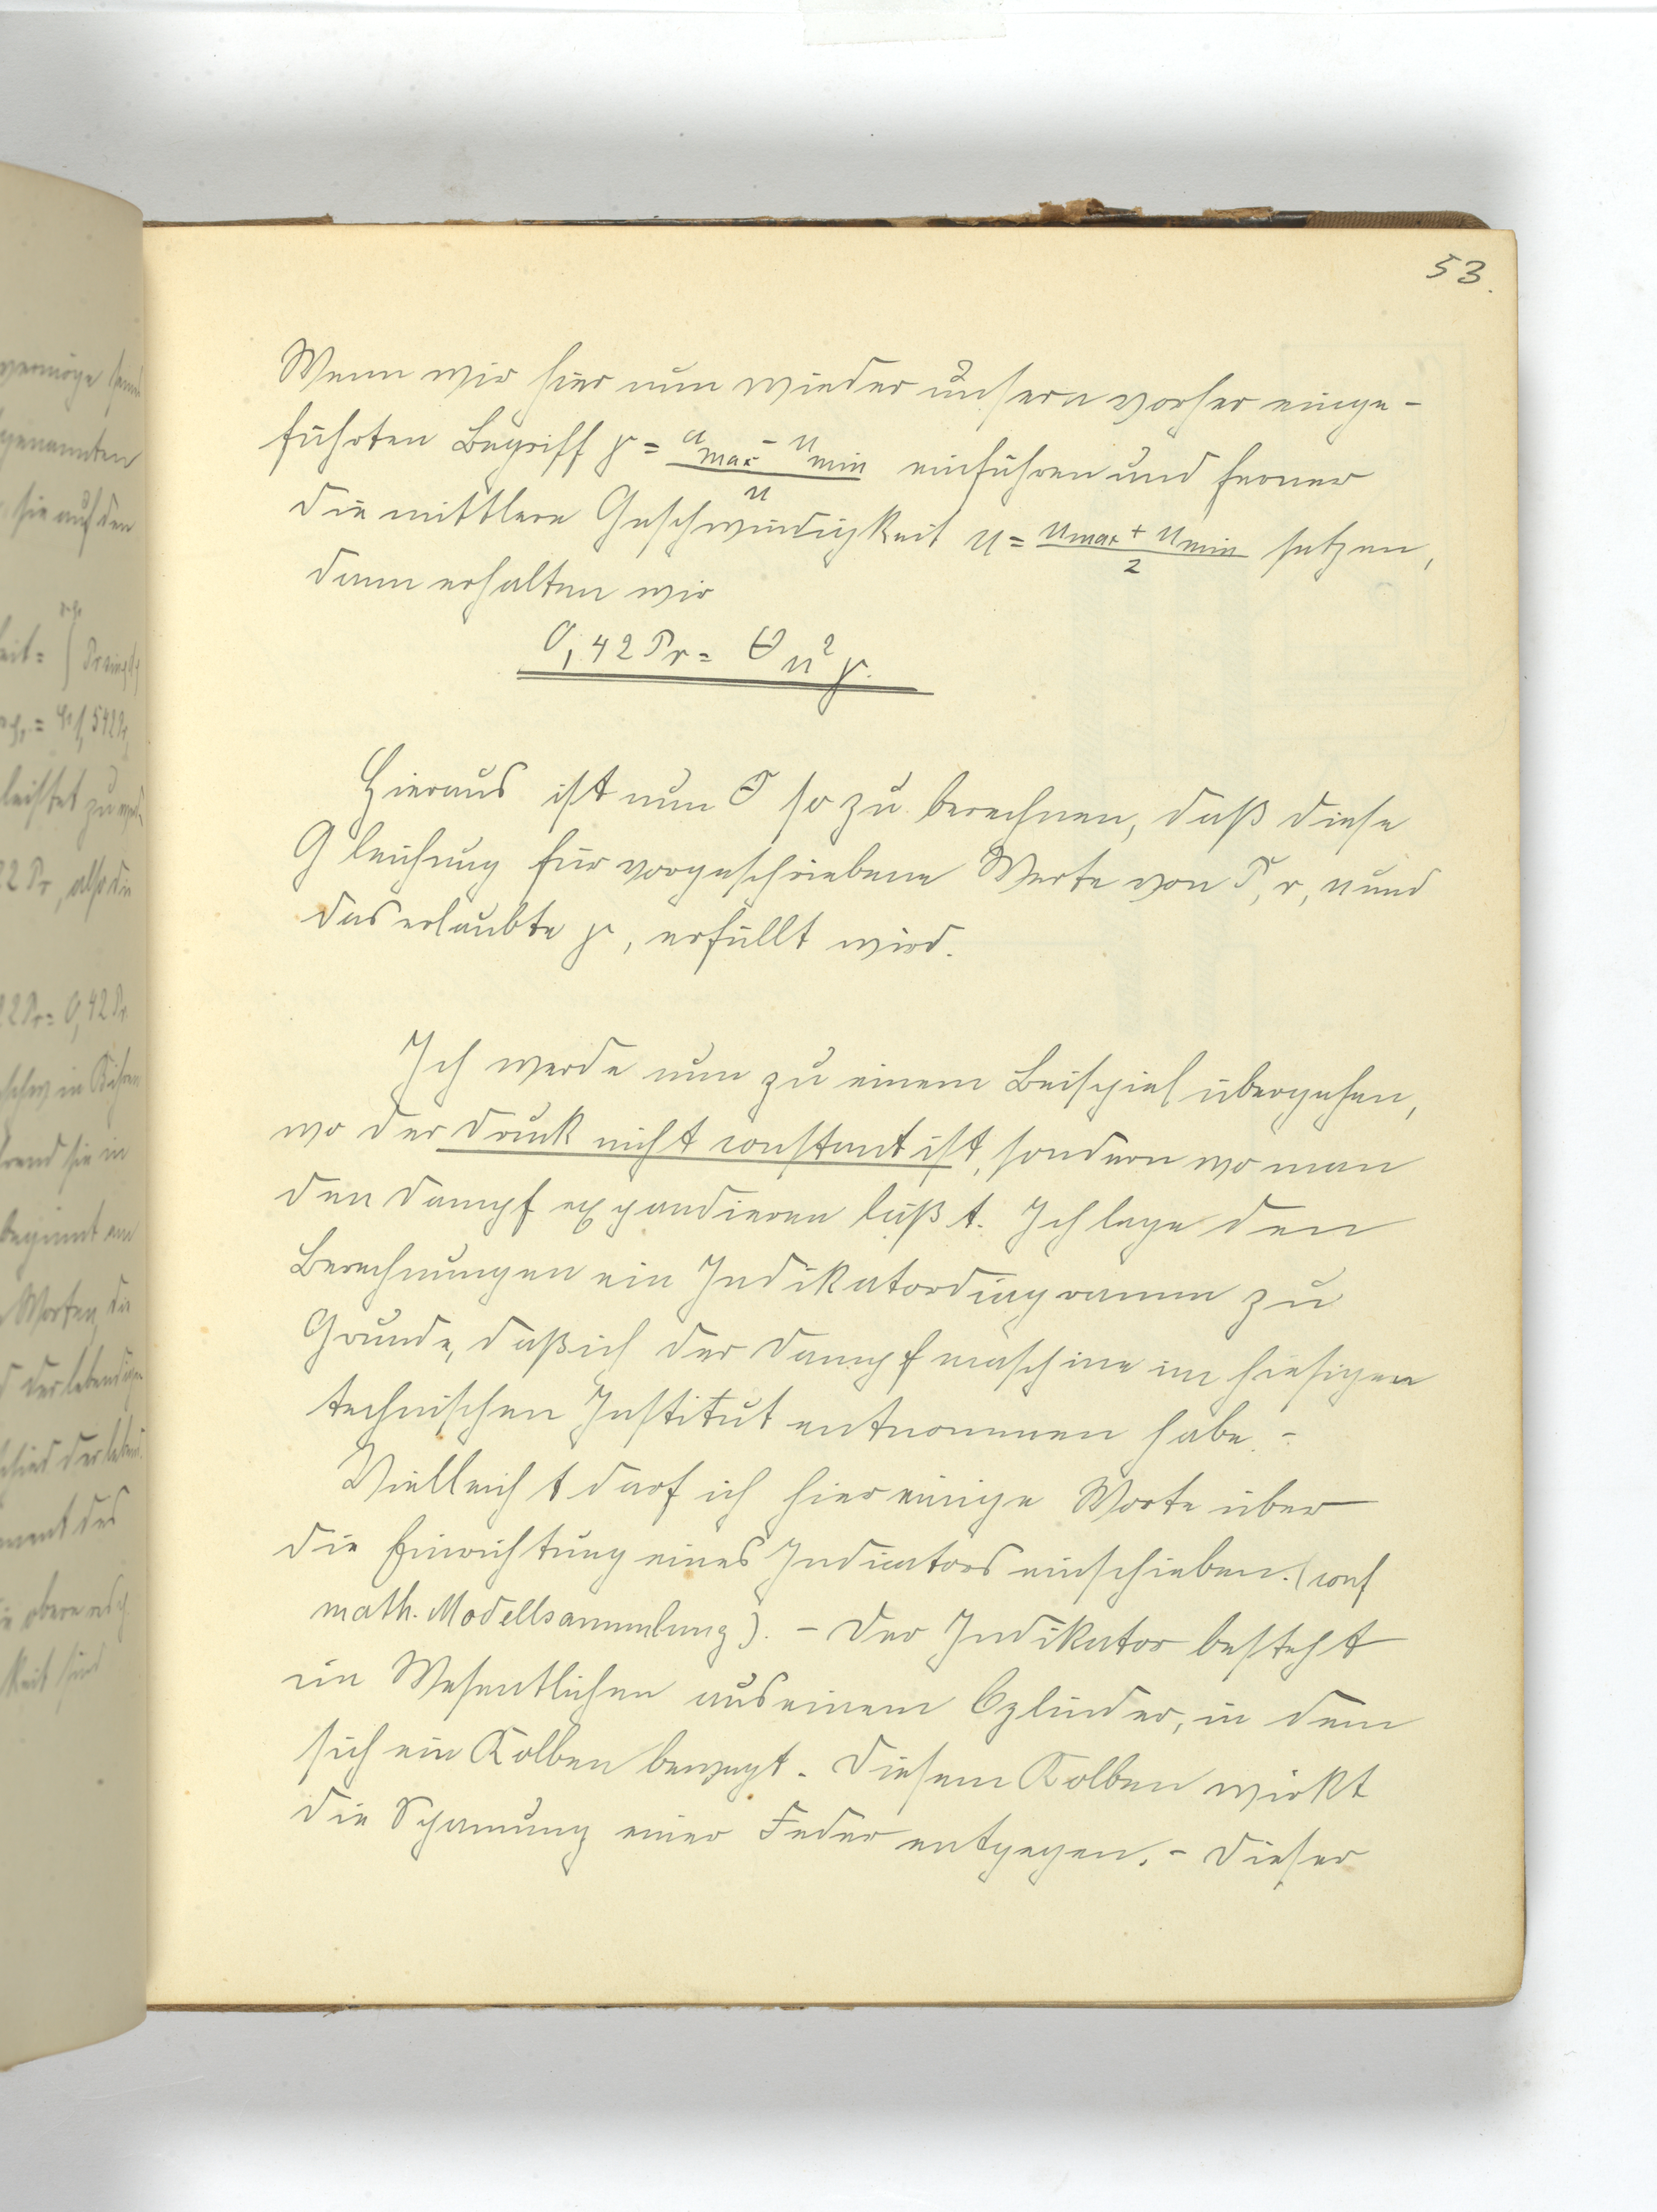 53.
Wenn wir hier nun wieder unsern vorher einge-
führten Begriff γ = (u_max - u_min)/u einführen und ferner
die mittlere Geschwindigkeit u = (u_max + u_min)/2 setzen,
dann erhalten wir
0,42 Pr = Θ u² γ.
Hieraus ist nun Θ so zu berechnen, daß diese
Gleichung für vorgeschriebene Werte von P, r, u und
das erlaubte γ, erfüllt wird.
Ich werde nun zu einem Beispiel übergehen,
wo der Druck nicht constant ist, sondern wo man
den Dampf expandieren läßt. Ich lege den
Berechnungen ein Indikatordiagramm zu
Grunde, daß ich der Dampfmaschine im hiesigen
technischen Institut entnommen habe. -
Vielleicht darf ich hier einige Worte über
die Einrichtung eines Indicators einschieben. (conf
math. Modellsammlung). - Der Indikator besteht
im Wesentlichen aus einem Cylinder, in dem
sich ein Kolben bewegt. Diesem Kolben wirkt
die Spannung einer Feder entgegen. - Dieser